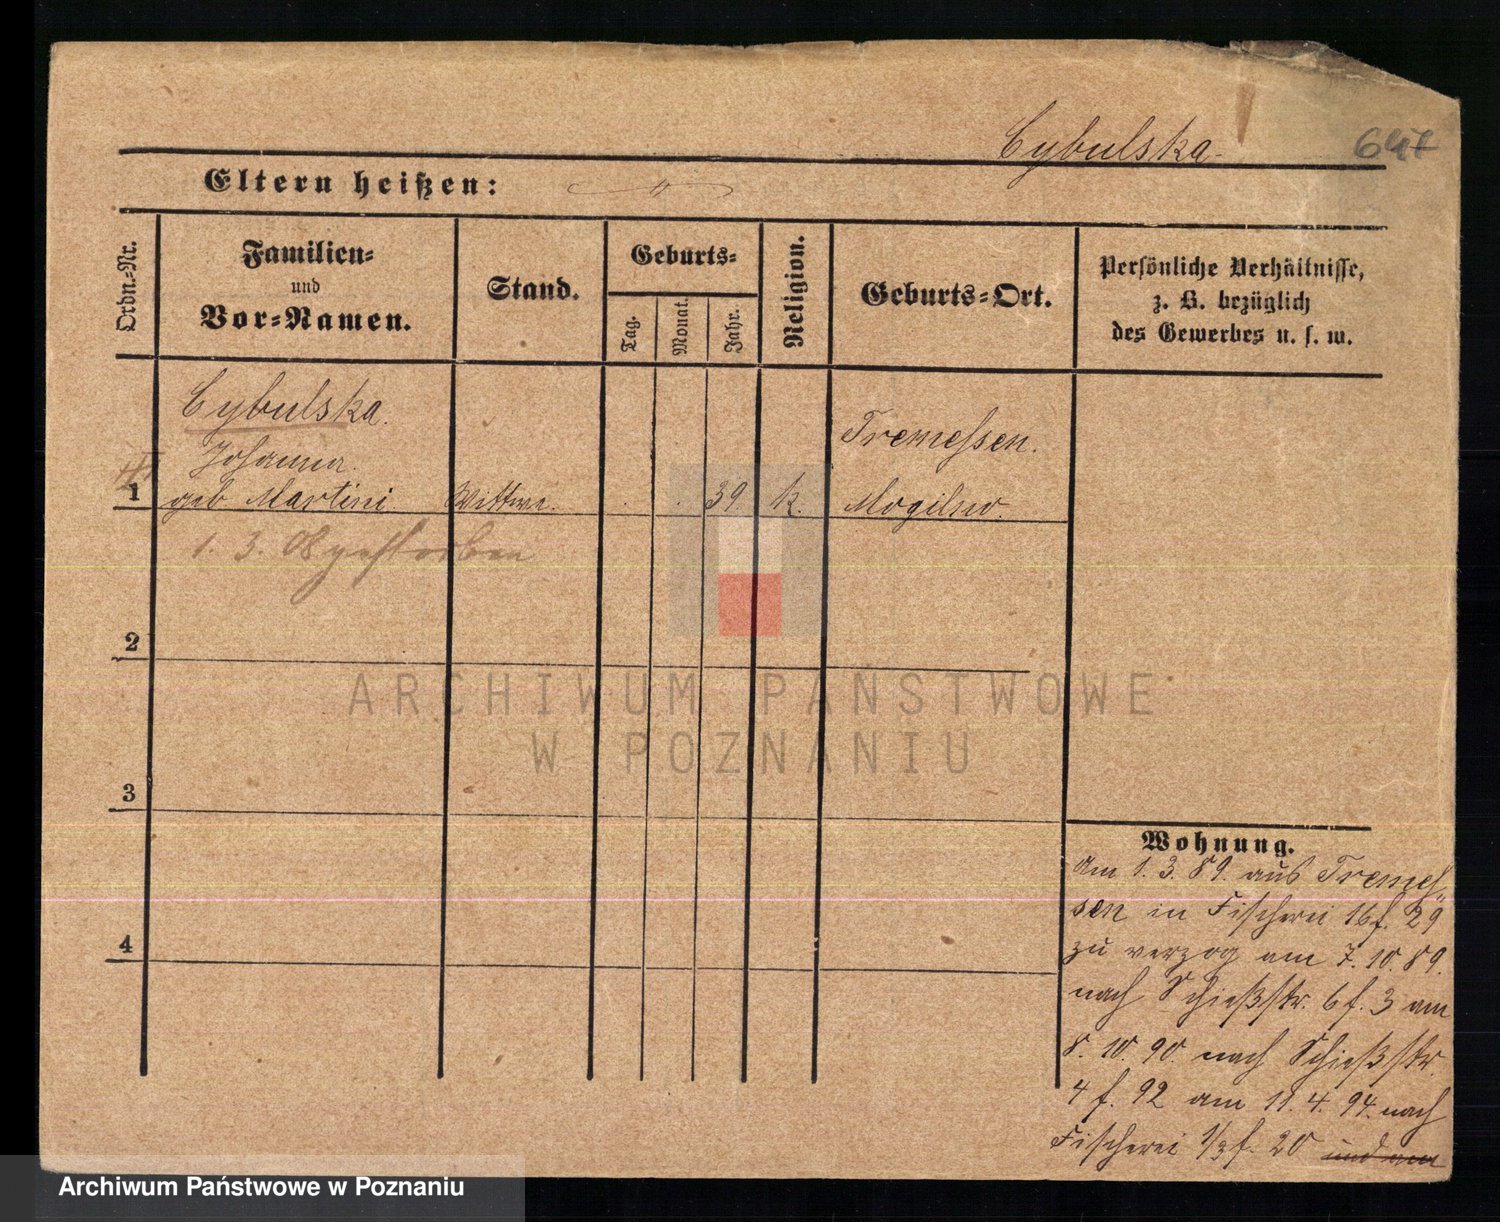 Cybulska.
647
Eltern heißen:
Ordn.-Nr.
Familien-
und
Vor-Namen.
Stand.
Geburts-
Tag.
Monat.
Jahr.
Religion.
Geburts-Ort.
Persönliche Verhältnisse,
z. B. bezüglich
des Gewerbes u. s. w.
Cybulska.
Johanna.
1 geb. Martini Wittwe. 39. k.
Tremessen.
Mogilno.
1. 3. 08 gestorben
2
3
4
ARCHIWUM PAŃSTWOWE
W POZNANIU
Wohnung.
Am 1. 3. 89. aus Tremes-
sen in Fischerei 16 f. 29
zu verzog am 7. 10. 89.
nach Schießstr. 6 f. 3 am
8. 10. 90. nach Schießstr.
4 f. 92 am 11. 4. 94. nach
Fischerei 1/3 f. 20 und am
Archiwum Państwowe w Poznaniu